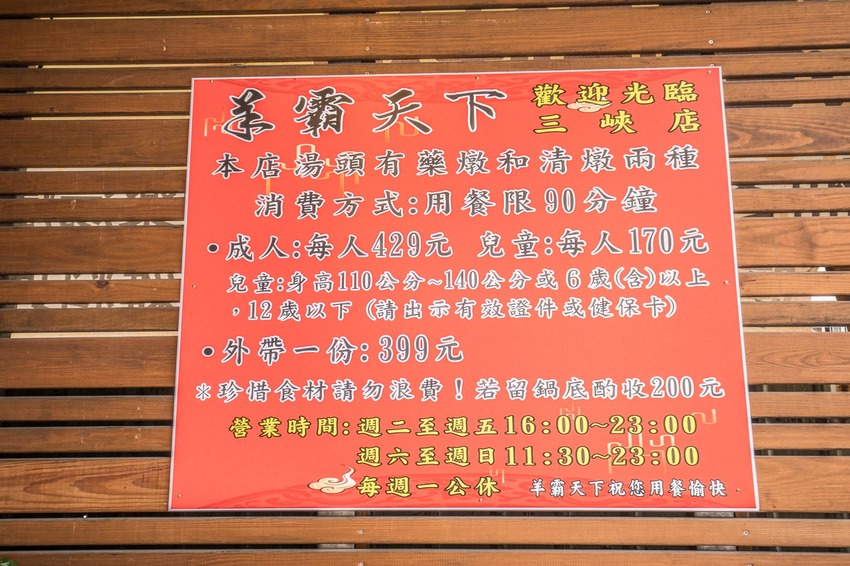 羊霸天下 歡迎光臨
三峽店
本店湯頭有藥燉和清燉兩種
消費方式:用餐限90分鐘
•成人:每人429元 兒童:每人170元
兒童:身高110公分~140公分或6歲(含)以上
，12歲以下(請出示有效證件或健保卡)
•外帶一份:399元
*珍惜食材請勿浪費！若留鍋底酌收200元
營業時間:週二至週五16:00~23:00
週六至週日11:30~23:00
每週一公休 羊霸天下祝您用餐愉快